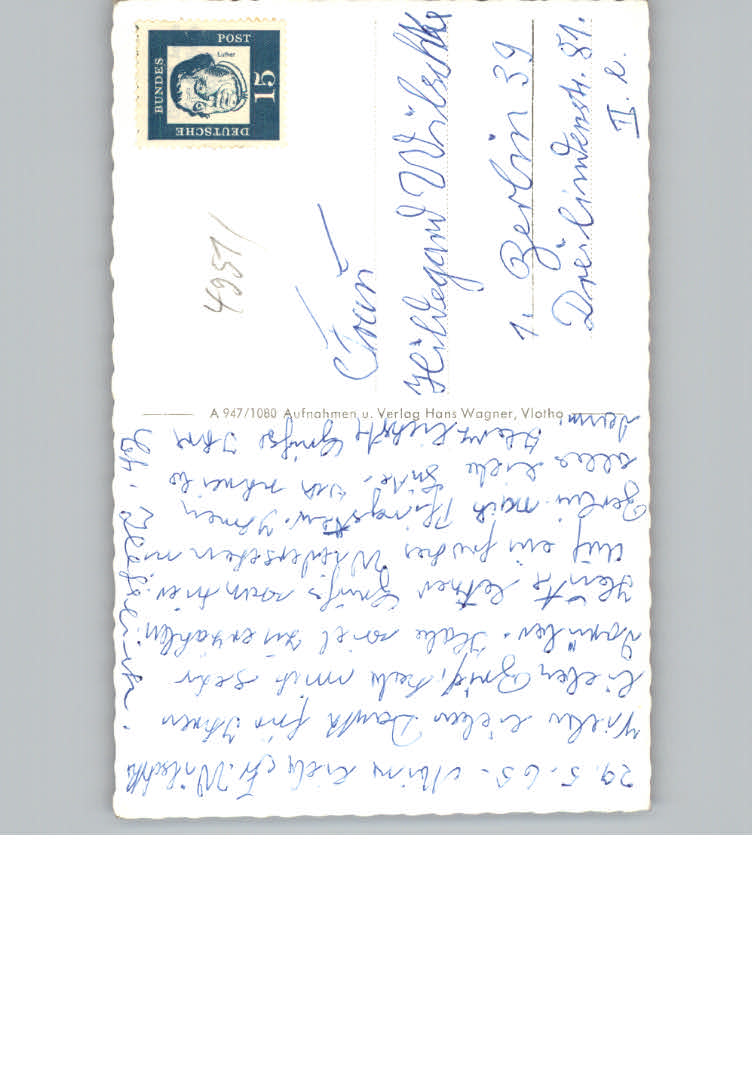 29.5.65. Meine liebe Fr. Wilschke
Vielen lieben Dank für Ihren
lieben Brief, habe mich sehr
darüber. Habe viel zu erzählen
Heute letzter Gruß von hier.
Auf ein frohes Wiedersehen in
Berlin nach Pfingsten. Ihnen
alles liebe Gute.
denn. Herzlichste Grüße Ihre
DEUTSCHE BUNDES POST
Luther
15
4951/
A 947/1080 Aufnahmen u. Verlag Hans Wagner, Vlotho
Frau
Hildegard Wilschke
1. Berlin 39
Dreilindenstr. 81.
II. r.